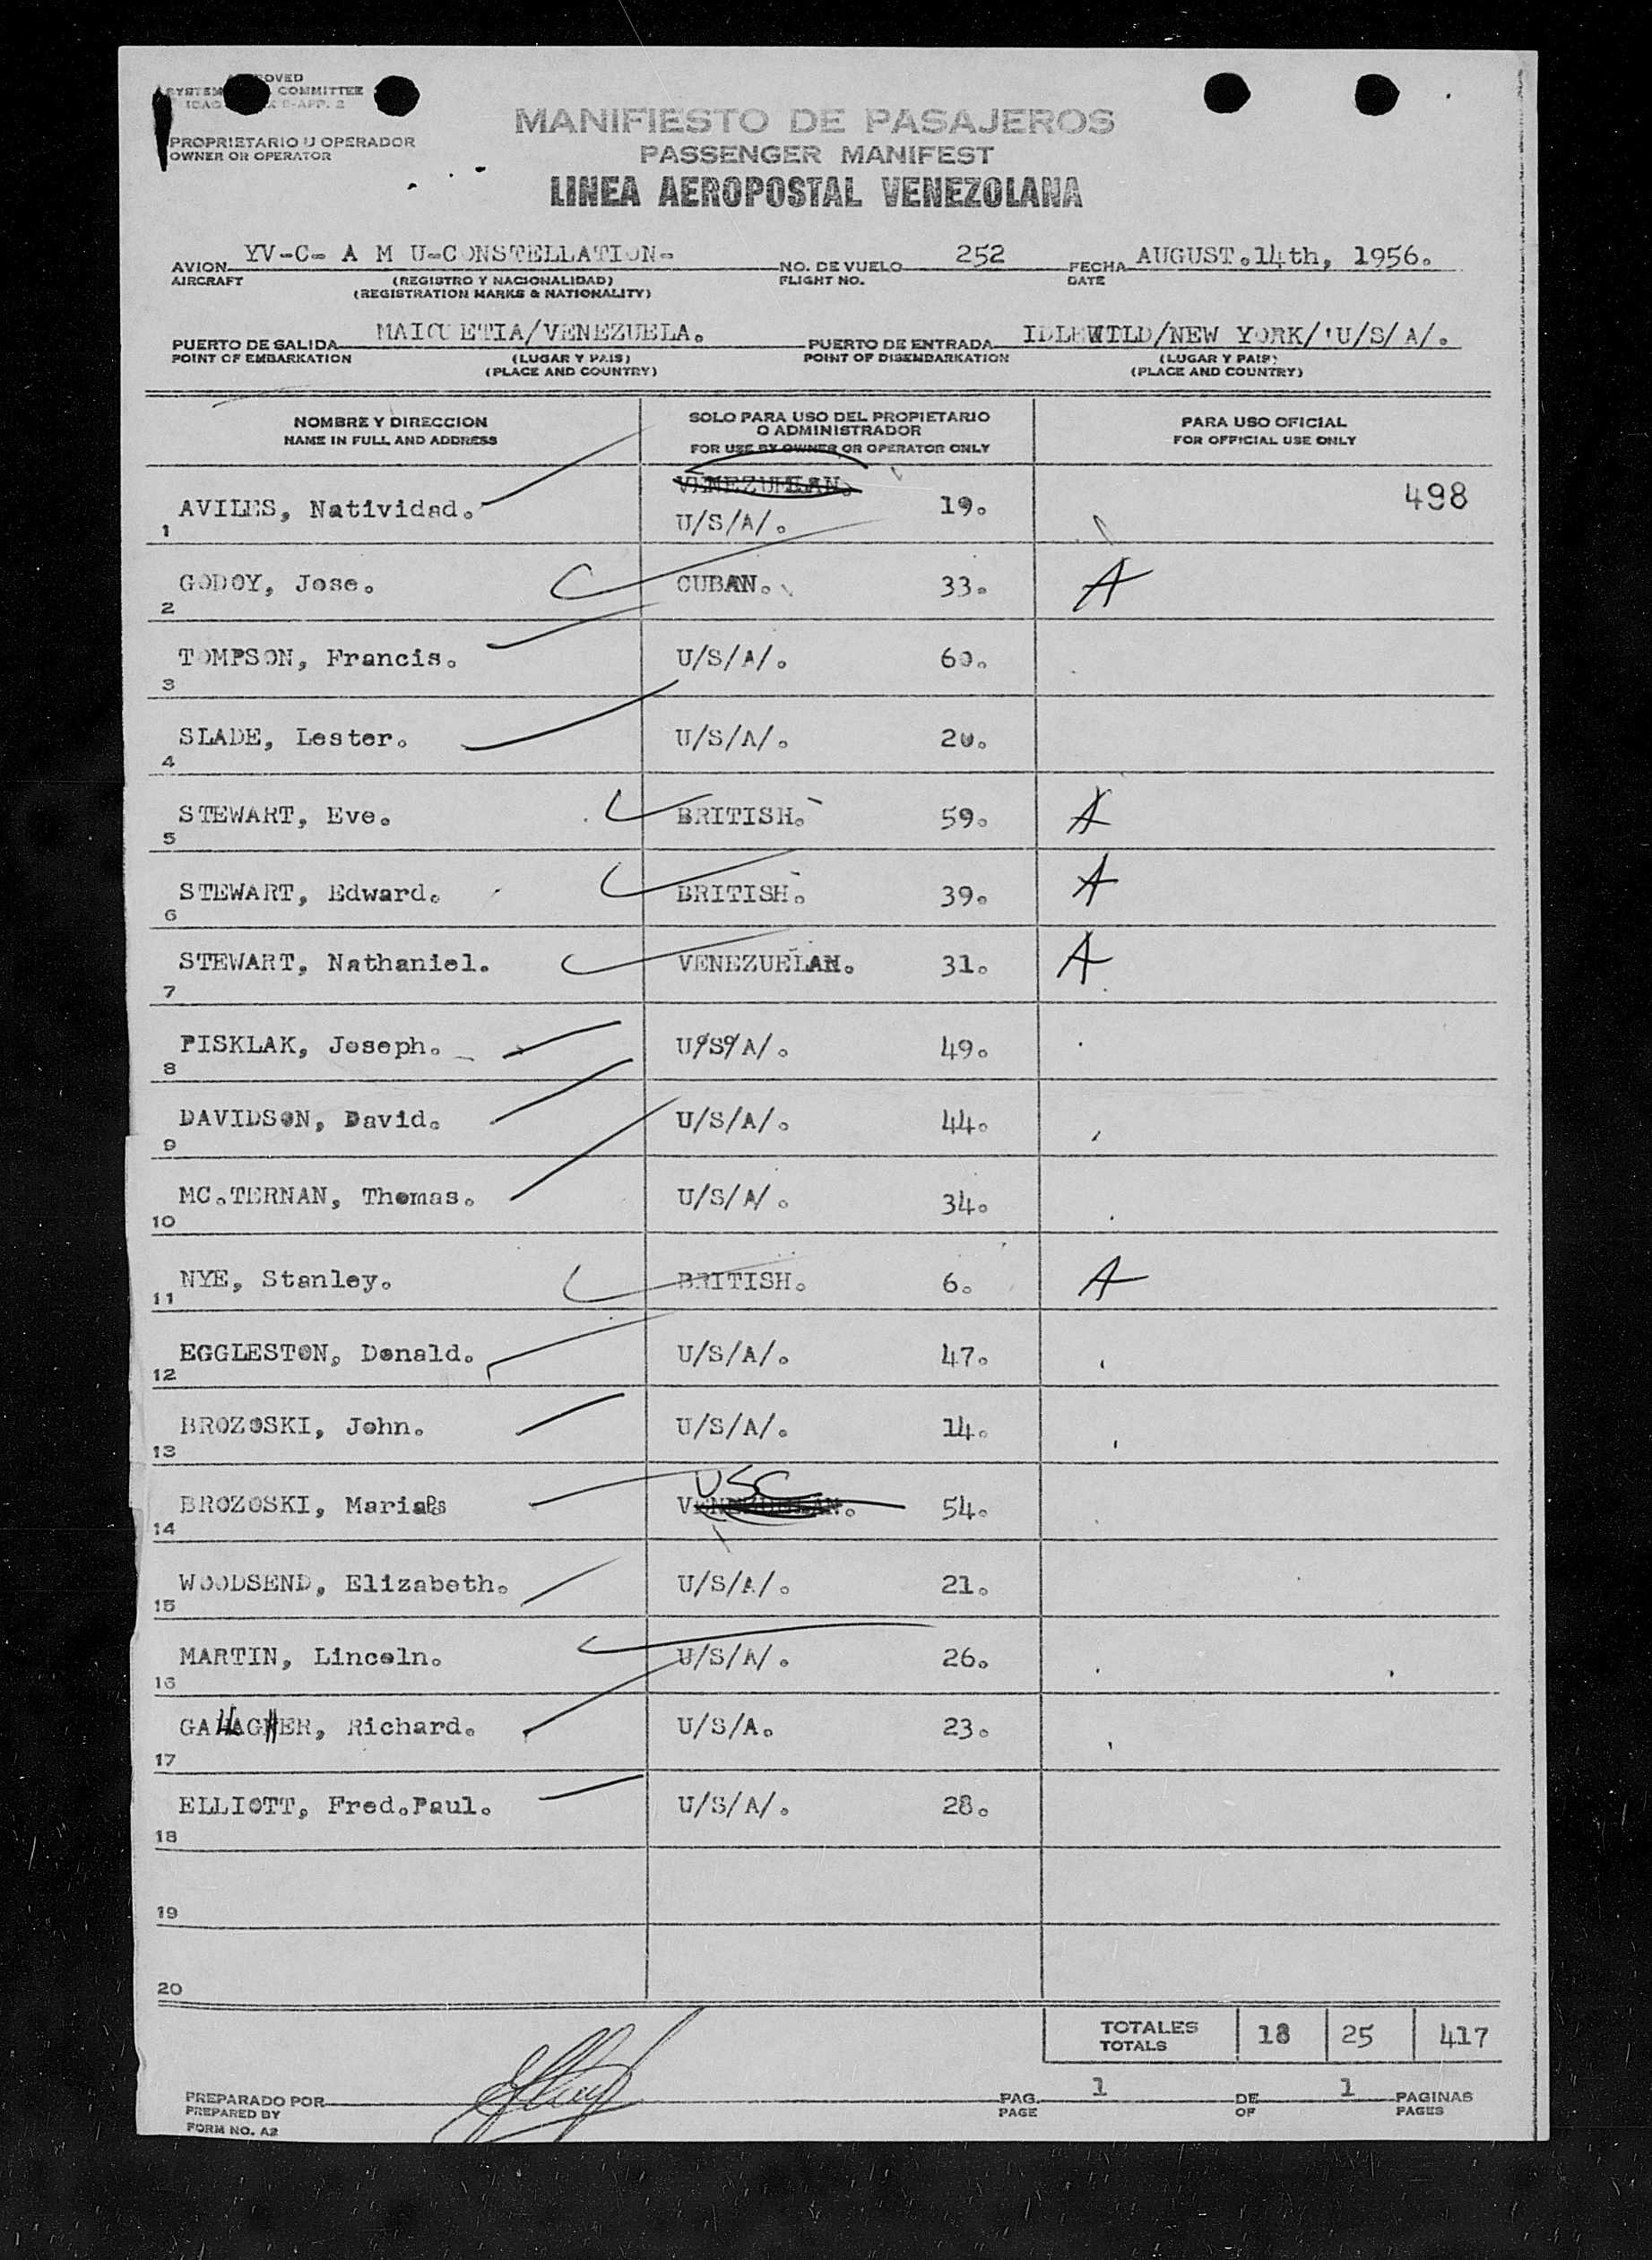 PROPRIETARIO U OPERADOR
OWNER OR OPERATOR
MANIFIESTO DE PASAJEROS
PASSENGER MANIFEST
LINEA AEROPOSTAL VENEZOLANA
AVION YV-C- A M U-CONSTELLATION- NO. DE VUELO 252 FECHA AUGUST.14th, 1956.
AIRCRAFT (REGISTRO Y NACIONALIDAD) FLIGHT NO. DATE
(REGISTRATION MARKS & NATIONALITY)
PUERTO DE SALIDA MAIQUETIA/VENEZUELA. PUERTO DE ENTRADA IDLEWILD/NEW YORK/'U/S/A/.
POINT OF EMBARKATION (LUGAR Y PAIS) POINT OF DISEMBARKATION (LUGAR Y PAIS)
(PLACE AND COUNTRY) (PLACE AND COUNTRY)
NOMBRE Y DIRECCION SOLO PARA USO DEL PROPIETARIO O ADMINISTRADOR PARA USO OFICIAL
NAME IN FULL AND ADDRESS FOR USE BY OWNER OR OPERATOR ONLY FOR OFFICIAL USE ONLY
VENEZUELAN.
1 AVILES, Natividad. U/S/A/. 19. 498
2 GODOY, Jose. CUBAN. 33. A
3 TOMPSON, Francis. U/S/A/. 60.
4 SLADE, Lester. U/S/A/. 20.
5 STEWART, Eve. BRITISH. 59. A
6 STEWART, Edward. BRITISH. 39. A
7 STEWART, Nathaniel. VENEZUELAN. 31. A
8 PISKLAK, Joseph. U/S/A/. 49.
9 DAVIDSON, David. U/S/A/. 44.
10 MC.TERNAN, Thomas. U/S/A/. 34.
11 NYE, Stanley. BRITISH. 6. A
12 EGGLESTON, Donald. U/S/A/. 47.
13 BROZOSKI, John. U/S/A/. 14.
USC
14 BROZOSKI, Maria VENEZUELAN. 54.
15 WOODSEND, Elizabeth. U/S/A/. 21.
16 MARTIN, Lincoln. U/S/A/. 26.
17 GALLAGHER, Richard. U/S/A. 23.
18 ELLIOTT, Fred.Paul. U/S/A/. 28.
19
20
TOTALES 18 25 417
TOTALS
PREPARADO POR PAG. 1 DE 1 PAGINAS
PREPARED BY PAGE OF PAGES
FORM NO. A2